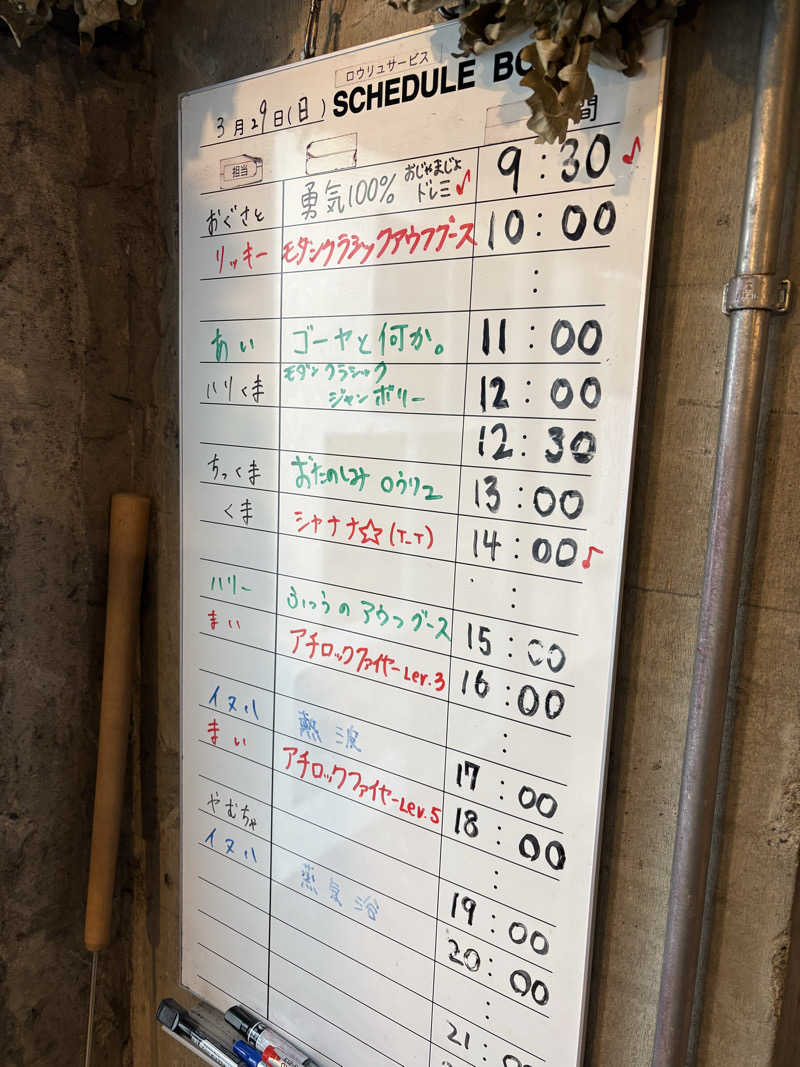 ロウリュサービス
3月29日(日) SCHEDULE BO
担当 間
おぐさと 勇気100% おじゃまじょドレミ♪ 9:30♪
リッキー モダンクラシックアウフグース 10:00
:
あい ゴーヤと何か。 11:00
ハリくま モダンクラシックジャンボリー 12:00
12:30
ちっくま おたのしみロウリュ 13:00
くま シャナナ☆(T_T) 14:00♪
:
ハリー ふつうのアウフグース 15:00
まい アチロックファイヤーLev.3 16:00
:
イヌい 熱波 17:00
まい アチロックファイヤーLev.5 18:00
やむちゃ :
イヌい 蒸気浴 19:00
20:00
:
21:00